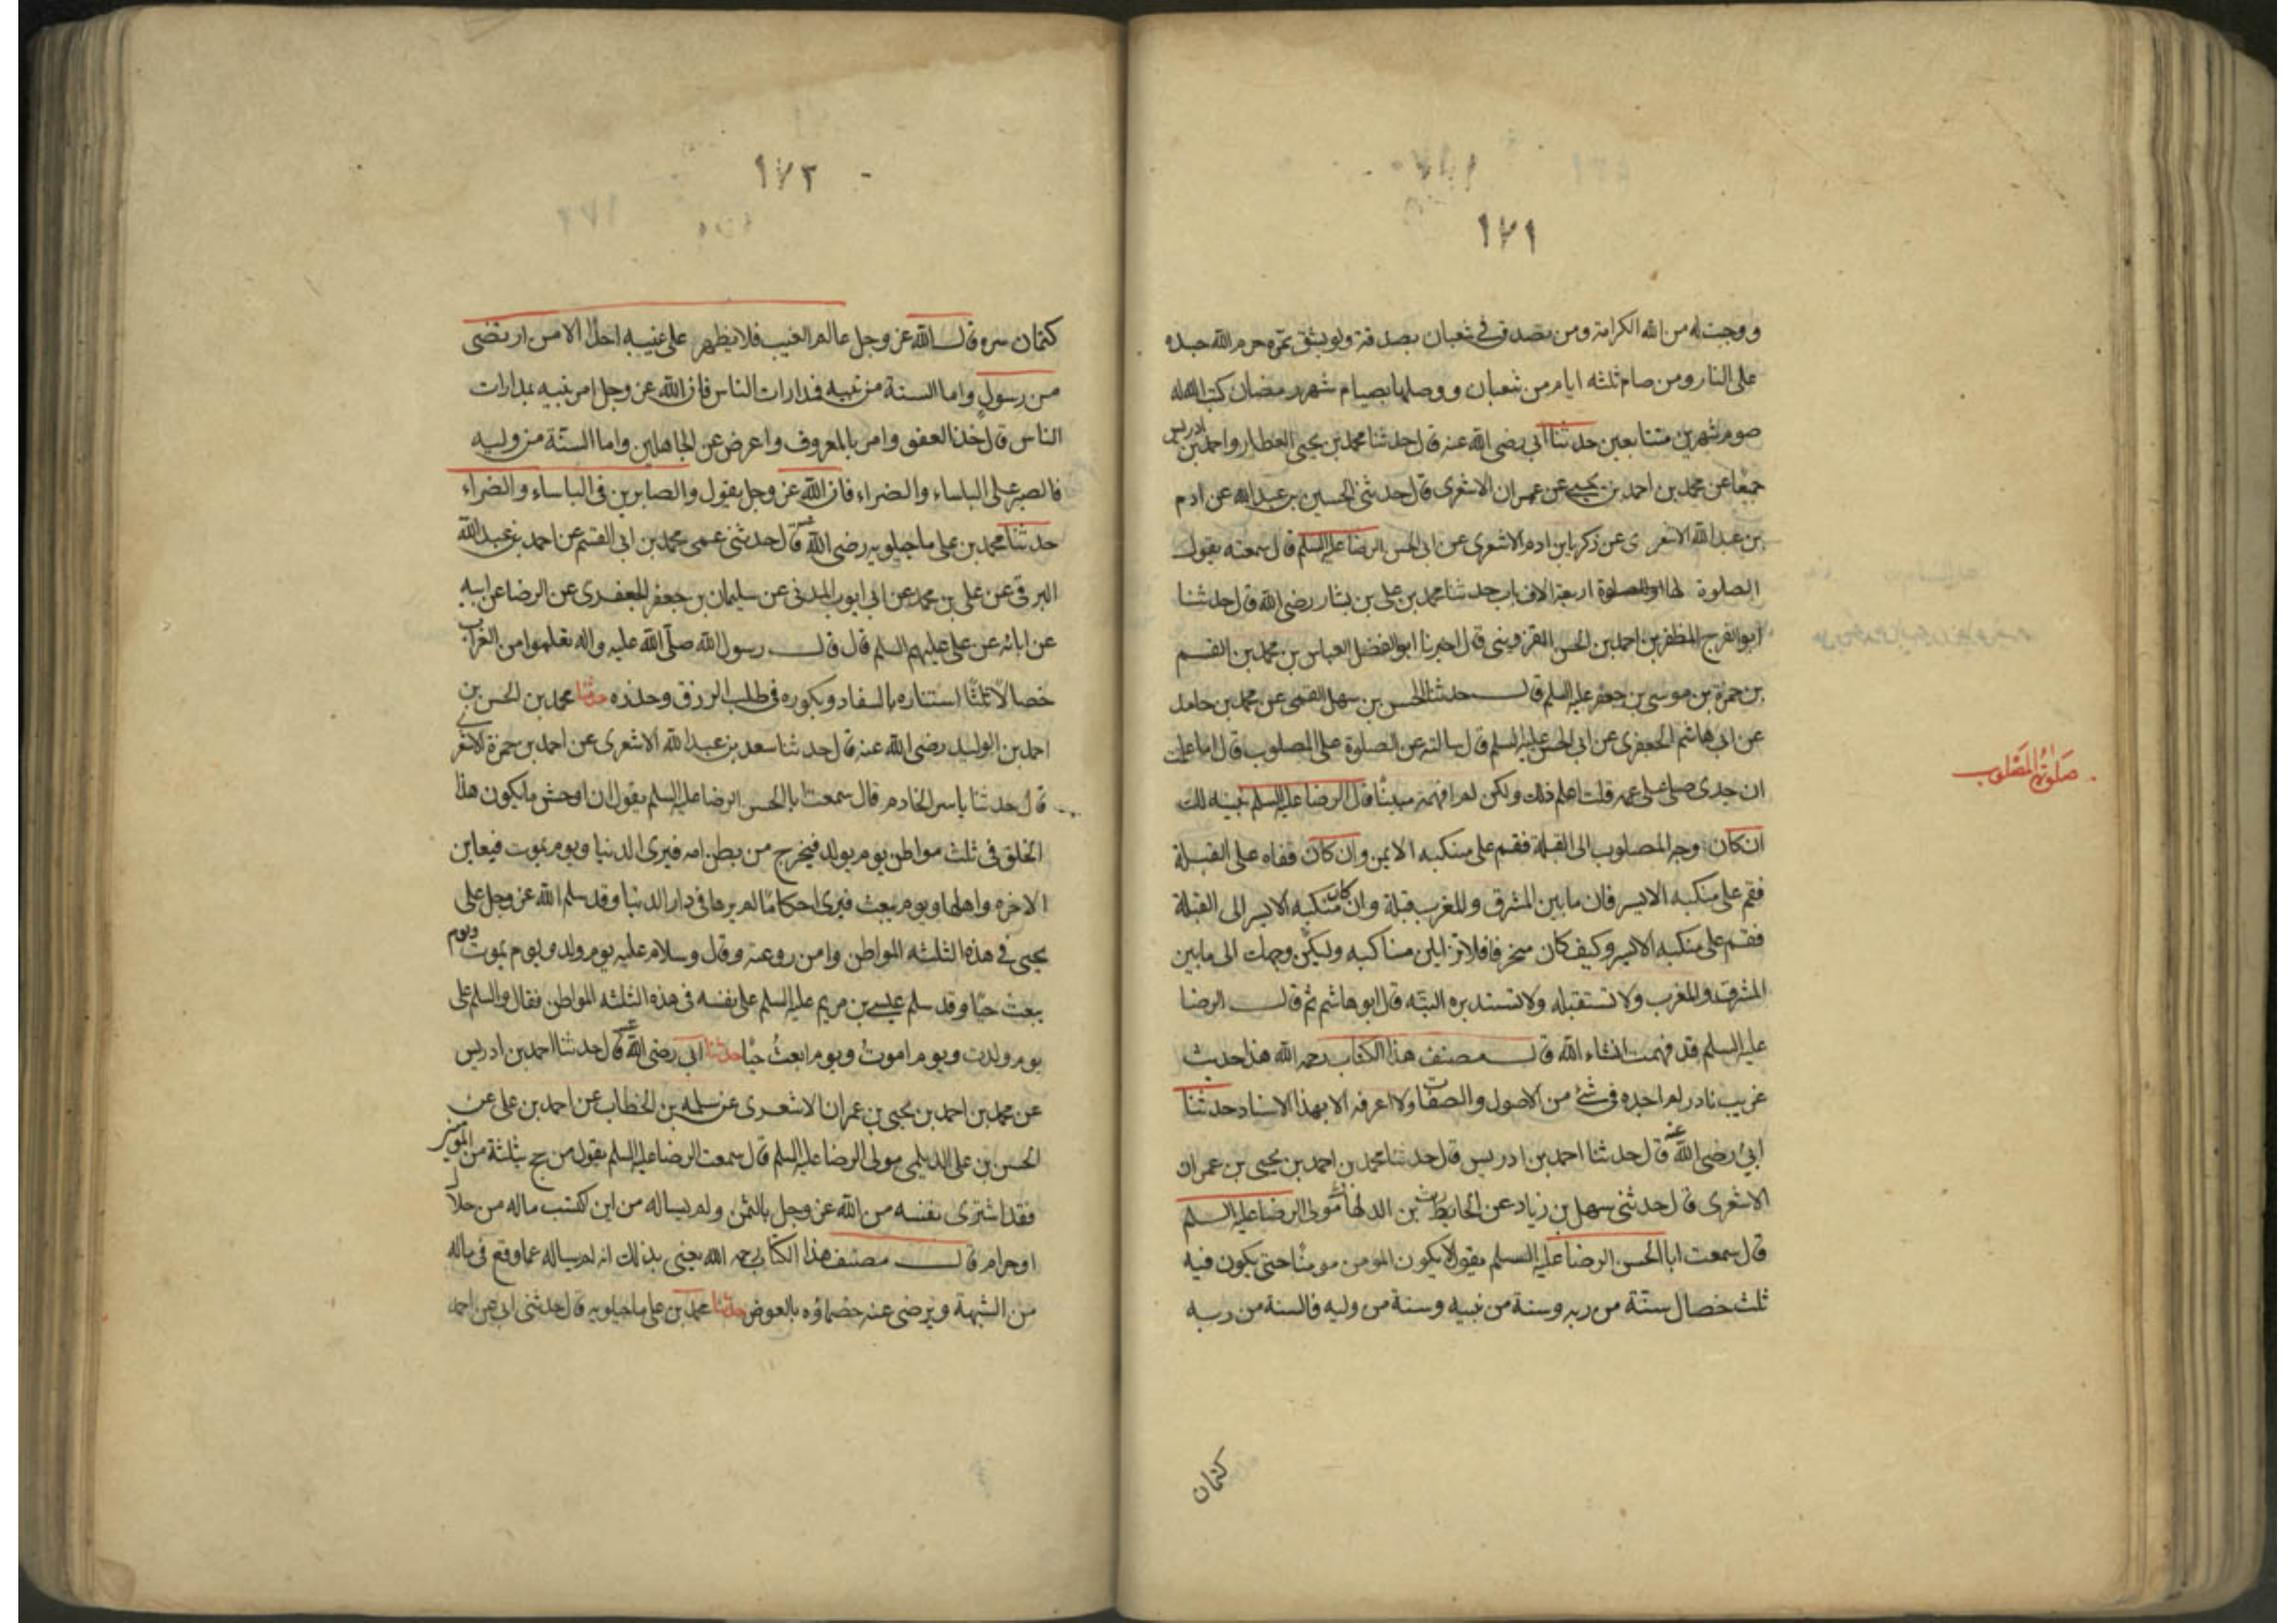 ١٧١
ووجبت له من الله الكرامة ومن تصدق في شعبان بصدقة ولو بشق تمرة حرم الله جسده
على النار ومن صام ثلثه ايام من شعبان ووصلها بصيام شهر رمضان كتب الله له
صوم شهرين متتابعين حدثنا ابي رضى الله عنه قال حدثنا محمد بن يحيى العطار واحمد بن ادريس
جميعا عن محمد بن احمد بن يحيى عن عمران الاشعرى قال حدثنى الحسين بن عبد الله عن ادم
بن عبد الله الاشعرى عن زكريا بن ادم الاشعرى عن ابى الحسن الرضا عليه السلم قال سمعته يقول
الصلوة لها اربعة الاف باب حدثنا محمد بن على بن بشار رضى الله قال حدثنا
ابو الفرج المظفر بن احمد بن الحسن القزوينى قال اخبرنا ابو الفضل العباس بن محمد بن القسم
بن حمزة بن موسى بن جعفر عليه السلم قال حدثنا الحسن بن سهل القمى عن محمد بن حامد
عن ابى هاشم الجعفرى عن ابى الحسن عليه السلم قال سالته عن الصلوة على المصلوب قال اما علمت
ان جدى صلى على عمه قلت اعلم ذلك ولكن لم افهمه مبينا قال الرضا عليه السلم نبينه لك
ان كان وجه المصلوب الى القبلة فقم على منكبه الايمن وان كان قفاه على القبلة
فقم على منكبه الايسر فان ما بين المشرق والمغرب قبلة وان كان منكبه الايسر الى القبلة
فقم على منكبه الايسر وكيف كان منحرفا فلا تزايلن مناكبه وليكن وجهك الى ما بين
المشرق والمغرب ولا تستقبله ولا تستدبره البتة قال ابو هاشم ثم قال الرضا
عليه السلم قد فهمت انشاء الله قال مصنف هذا الكتاب رحمه الله هذا حديث
غريب نادر لم اجده فى شئ من الاصول والصفات ولا اعرفه الا بهذا الاسناد حدثنا
ابى رضى الله عنه قال حدثنا احمد بن ادريس قال حدثنا محمد بن احمد بن يحيى بن عمران
الاشعرى قال حدثنى سهل بن زياد عن الحارث بن الدلهاث مولى الرضا عليه السلم
قال سمعت ابا الحسن الرضا عليه السلم يقول لا يكون المومن مومنا حتى يكون فيه
ثلث خصال سنة من ربه وسنة من نبيه وسنة من وليه فالسنة من ربه
كتمان
صلوة المصلوب
١٧٢
كتمان سره قال الله عز وجل عالم الغيب فلا يظهر على غيبه احدا الا من ارتضى
من رسول واما السنة من نبيه فمدارات الناس فان الله عز وجل امر نبيه بمدارات
الناس قال خذ العفو وامر بالمعروف واعرض عن الجاهلين واما السنة من وليه
فالصبر على الباساء والضراء فان الله عز وجل يقول والصابرين فى الباساء والضراء
حدثنا محمد بن على ماجيلويه رضى الله عنه قال حدثنى عمى محمد بن ابى القسم عن احمد بن عبد الله
البرقى عن على بن محمد عن ابى ايوب المدنى عن سليمان بن جعفر الجعفرى عن الرضا عن ابيه
عن ابائه عن على عليهم السلم قال قال رسول الله صلى الله عليه واله تعلموا من الغراب
خصالا ثلثا استتاره بالسفاد وبكوره فى طلب الرزق وحذره حدثنا محمد بن الحسن بن
احمد بن الوليد رضى الله عنه قال حدثنا سعد بن عبد الله الاشعرى عن احمد بن حمزة الاشعرى
قال حدثنا ياسر الخادم قال سمعت ابا الحسن الرضا عليه السلم يقول ان اوحش ما يكون هذا
الخلق فى ثلث مواطن يوم يولد فيخرج من بطن امه فيرى الدنيا ويوم يموت فيعاين
الاخره واهلها ويوم يبعث فيرى احكاما لم يرها فى دار الدنيا وقد سلم الله عز وجل على
يحيى فى هذه الثلثه المواطن وامن روعته وقال وسلام عليه يوم ولد ويوم يموت ويوم
يبعث حيا وقد سلم عيسى بن مريم عليه السلم على نفسه فى هذه الثلثه المواطن فقال والسلم على
يوم ولدت ويوم اموت ويوم ابعث حيا حدثنا ابى رضى الله عنه قال حدثنا احمد بن ادريس
عن محمد بن احمد بن يحيى بن عمران الاشعرى عن سلمه بن الخطاب عن احمد بن على عن
الحسن بن على الديلمى مولى الرضا عليه السلم قال سمعت الرضا عليه السلم يقول من حج بثلثة من المومنين
فقد اشترى نفسه من الله عز وجل بالثمن ولم يساله من اين اكتسب ماله من حلال
او حرام قال مصنف هذا الكتاب رحمه الله يعنى بذلك انه لم يساله عما وقع فى ماله
من الشبهة ويرضى عنه خصماؤه بالعوض حدثنا محمد بن على ماجيلويه قال حدثنى ابى عن احمد